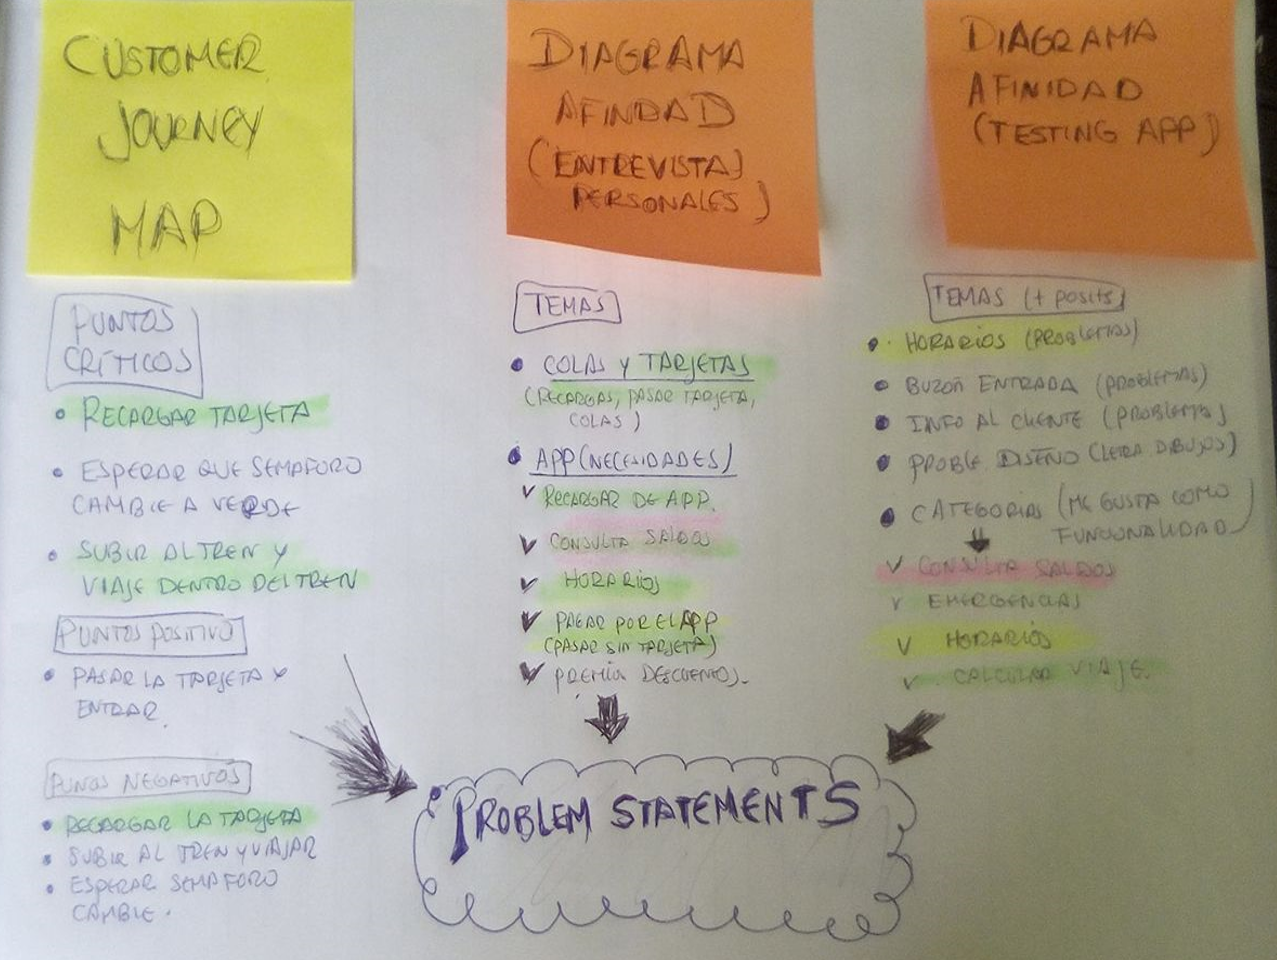 CUSTOMER
JOURNEY
MAP
PUNTOS
CRÍTICOS
• RECARGAR TARJETA
• ESPERAR QUE SEMAFORO
CAMBIE A VERDE
• SUBIR AL TREN Y
VIAJE DENTRO DEL TREN
PUNTOS POSITIVO
• PASAR LA TARJETA Y
ENTRAR.
PUNOS NEGATIVOS
• RECARGAR LA TARJETA
• SUBIR AL TREN Y VIAJAR
• ESPERAR SEMAFORO
CAMBIE.
DIAGRAMA
AFINIDAD
(ENTREVISTA)
PERSONALES)
TEMAS
• COLAS Y TARJETAS
(RECARGAS, PASAR TARJETA,
COLAS)
• APP (NECESIDADES)
✓ RECARGAR DE APP.
✓ CONSULTA SALDOS
✓ HORARIOS
✓ PAGAR POR EL APP
(PASAR SIN TARJETA)
✓ PREMIA DESCUENTOS.
DIAGRAMA
AFINIDAD
(TESTING APP)
TEMAS (+ POSITS)
• HORARIOS (PROBLEMAS)
• BUZON ENTRADA (PROBLEMAS)
• INFO AL CLIENTE (PROBLEMAS)
• PROBLE. DISEÑO (LETRA DIBUJOS)
• CATEGORIAS (ME GUSTA COMO
FUNCIONALIDAD)
✓ CONSULTA SALDOS
✓ EMERGENCIAS
✓ HORARIOS
✓ CALCULAR VIAJE.
PROBLEM STATEMENTS